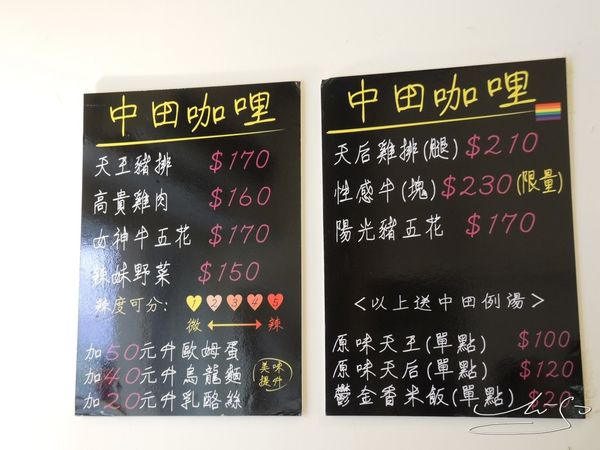 中田咖哩
天王豬排 $170
高貴雞肉 $160
女神牛五花 $170
辣妹野菜 $150
辣度可分: 1 2 3 4 5
微 辣
加50元升歐姆蛋
加40元升烏龍麵
加20元升乳酪絲
美味
提升
中田咖哩
天后雞排(腿) $210
性感牛(塊) $230 (限量)
陽光豬五花 $170
<以上送中田例湯>
原味天王(單點) $100
原味天后(單點) $120
鬱金香米飯(單點) $20